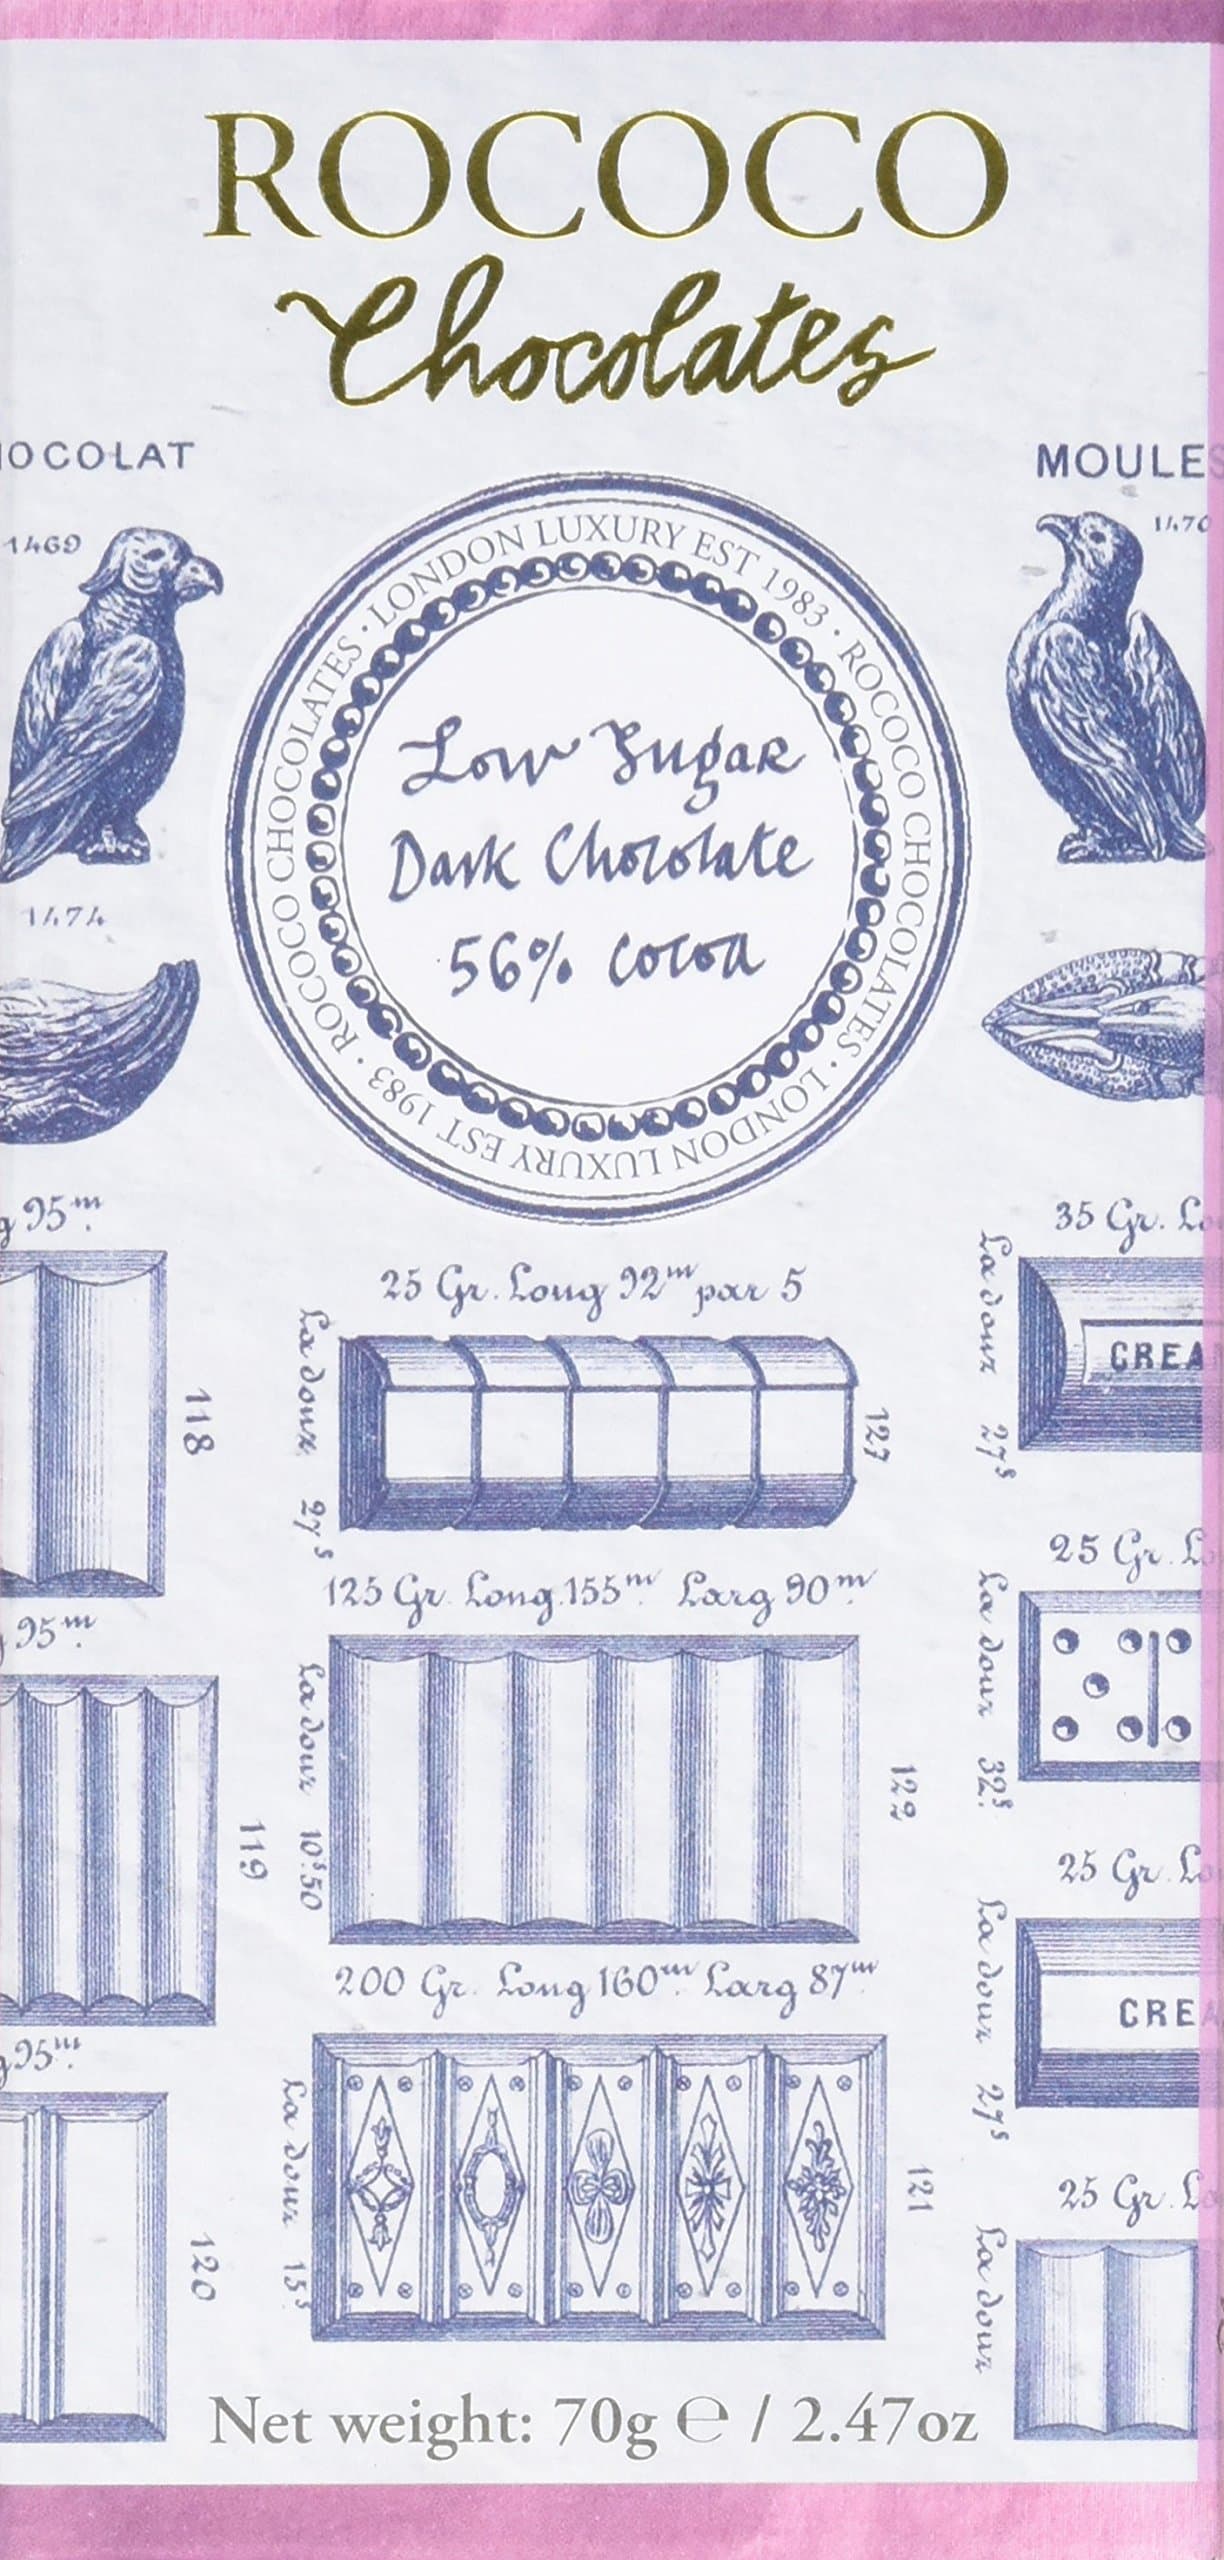 ROCOCO
Chocolates
OCOLAT
MOULES
1469
1470
ROCOCO CHOCOLATES · LONDON LUXURY EST 1983 · ROCOCO CHOCOLATES · LONDON LUXURY EST 1983 ·
Low Sugar
Dark Chocolate
56% cocoa
1474
g 95m.
35 Gr. Lo
25 Gr. Long 92m par 5
La douz 27s
127
118
La douz 27s
CREA
95m.
125 Gr. Long. 155m. Larg 90m.
25 Gr. Lo
La douz 10s.50
122
La douz 32s.
119
25 Gr. Lo
200 Gr. Long 160m. Larg 87m.
La douz 27s
CREA
g 95m.
La douz 15s.
121
25 Gr. Lo
La douz
120
Net weight: 70g ℮ / 2.47oz